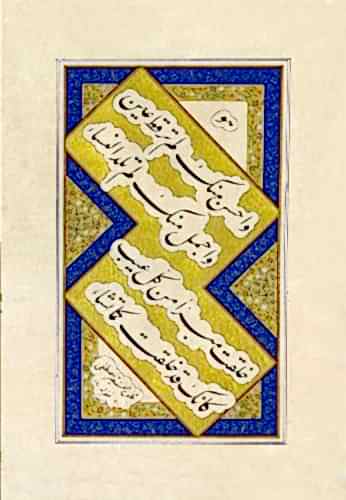 هو
واحسن منك لم تر قط عين
واجمل منك لم تلد النساء
خلقت مبرأ من كل عيب
كانك قد خلقت كما تشاء